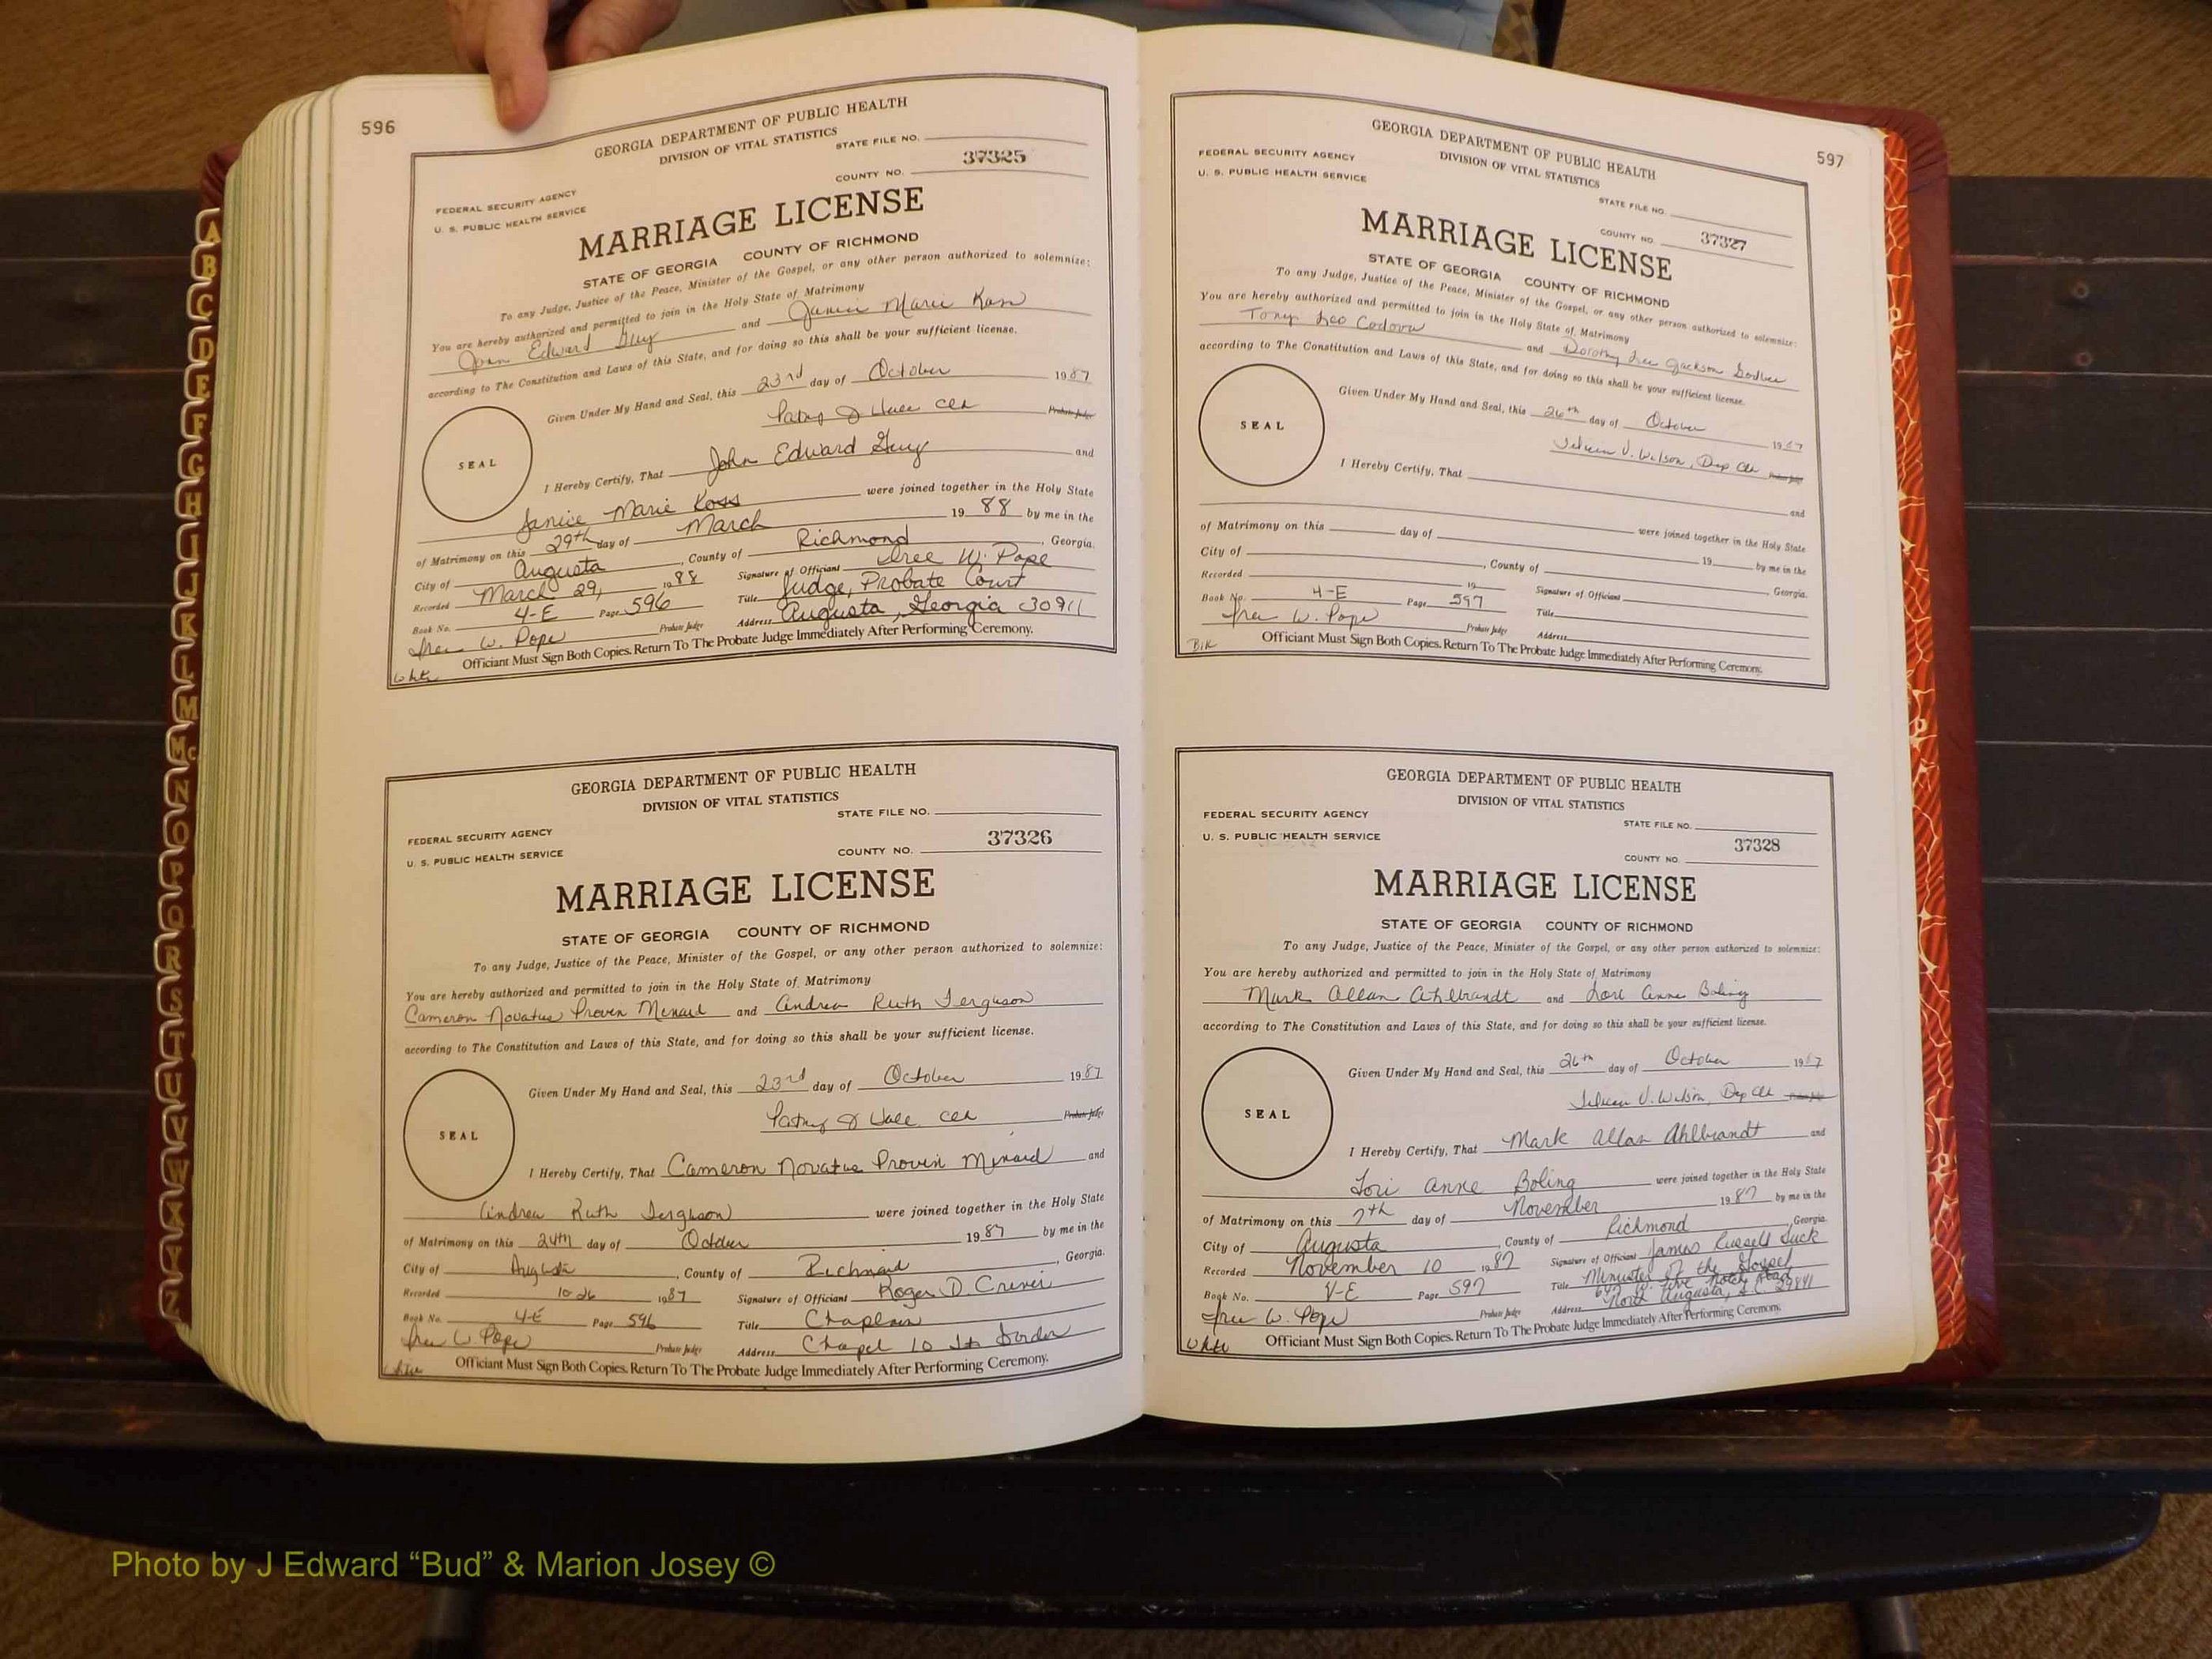 596
GEORGIA DEPARTMENT OF PUBLIC HEALTH
DIVISION OF VITAL STATISTICS
STATE FILE NO.
37325
COUNTY NO.
FEDERAL SECURITY AGENCY
U. S. PUBLIC HEALTH SERVICE
MARRIAGE LICENSE
STATE OF GEORGIA COUNTY OF RICHMOND
To any Judge, Justice of the Peace, Minister of the Gospel, or any other person authorized to solemnize:
You are hereby authorized and permitted to join in the Holy State of Matrimony
John Edward Guy and Janice Marie Koss
according to The Constitution and Laws of this State, and for doing so this shall be your sufficient license.
Given Under My Hand and Seal, this 23rd day of October 1987
Probate Judge
SEAL
I Hereby Certify, That John Edward Guy and
Janice Marie Koss were joined together in the Holy State
of Matrimony on this 29th day of March 19 88 by me in the
City of Augusta, County of Richmond, Georgia.
Recorded March 29, 1988 Signature of Officiant W. Pope
Book No. 4-E Page 596 Title Judge, Probate Court
W. Pope Probate Judge Address Augusta, Georgia 30911
Officiant Must Sign Both Copies. Return To The Probate Judge Immediately After Performing Ceremony.
White
GEORGIA DEPARTMENT OF PUBLIC HEALTH
DIVISION OF VITAL STATISTICS
STATE FILE NO.
FEDERAL SECURITY AGENCY
37326
U. S. PUBLIC HEALTH SERVICE
COUNTY NO.
MARRIAGE LICENSE
STATE OF GEORGIA COUNTY OF RICHMOND
To any Judge, Justice of the Peace, Minister of the Gospel, or any other person authorized to solemnize:
You are hereby authorized and permitted to join in the Holy State of Matrimony
Cameron Novatus Proven Menard and Andrea Ruth Ferguson
according to The Constitution and Laws of this State, and for doing so this shall be your sufficient license.
Given Under My Hand and Seal, this 23rd day of October 1987
Probate Judge
SEAL
I Hereby Certify, That Cameron Novatus Proven Menard and
Andrea Ruth Ferguson were joined together in the Holy State
of Matrimony on this 24th day of October 1987 by me in the
City of Augusta, County of Richmond, Georgia.
Recorded 10-26 1987 Signature of Officiant Roger D.
Book No. 4-E Page 596 Title Chaplain
W. Pope Probate Judge Address Chapel 10 Ft Gordon
Officiant Must Sign Both Copies. Return To The Probate Judge Immediately After Performing Ceremony.
White
597
GEORGIA DEPARTMENT OF PUBLIC HEALTH
DIVISION OF VITAL STATISTICS
FEDERAL SECURITY AGENCY
U. S. PUBLIC HEALTH SERVICE
STATE FILE NO.
COUNTY NO. 37327
MARRIAGE LICENSE
STATE OF GEORGIA COUNTY OF RICHMOND
To any Judge, Justice of the Peace, Minister of the Gospel, or any other person authorized to solemnize:
You are hereby authorized and permitted to join in the Holy State of Matrimony
Tony Leo Cordova and Dorothy Jackson
according to The Constitution and Laws of this State, and for doing so this shall be your sufficient license.
Given Under My Hand and Seal, this 26th day of October 1987
V. Wilson, Dep Clk Probate Judge
SEAL
I Hereby Certify, That
and
were joined together in the Holy State
of Matrimony on this day of 19 by me in the
City of , County of Georgia.
Recorded 19 Signature of Officiant
Book No. 4-E Page 597 Title
W. Pope Probate Judge Address
Blk Officiant Must Sign Both Copies. Return To The Probate Judge Immediately After Performing Ceremony.
GEORGIA DEPARTMENT OF PUBLIC HEALTH
DIVISION OF VITAL STATISTICS
FEDERAL SECURITY AGENCY
STATE FILE NO.
U. S. PUBLIC HEALTH SERVICE
37328
COUNTY NO.
MARRIAGE LICENSE
STATE OF GEORGIA COUNTY OF RICHMOND
To any Judge, Justice of the Peace, Minister of the Gospel, or any other person authorized to solemnize:
You are hereby authorized and permitted to join in the Holy State of Matrimony
Mark Allan Ahlbrandt and Lori Anne Boling
according to The Constitution and Laws of this State, and for doing so this shall be your sufficient license.
Given Under My Hand and Seal, this 26th day of October 1987
V. Wilson, Dep Clk
SEAL
I Hereby Certify, That Mark Allan Ahlbrandt and
Lori Anne Boling were joined together in the Holy State
of Matrimony on this 7th day of November 1987 by me in the
City of Augusta, County of Richmond, Georgia.
Recorded November 10 1987 Signature of Officiant James Russell
Book No. 4-E Page 597 Title Minister of the Gospel
W. Pope Probate Judge Address Five Notch Road
North Augusta, S.C. 29841
White Officiant Must Sign Both Copies. Return To The Probate Judge Immediately After Performing Ceremony.
A
B
C
D
E
F
G
H
I
J
K
L
M
Mc
N
O
P
Q
R
S
T
U
V
W
X
Y
Z
Photo by J Edward “Bud” & Marion Josey ©